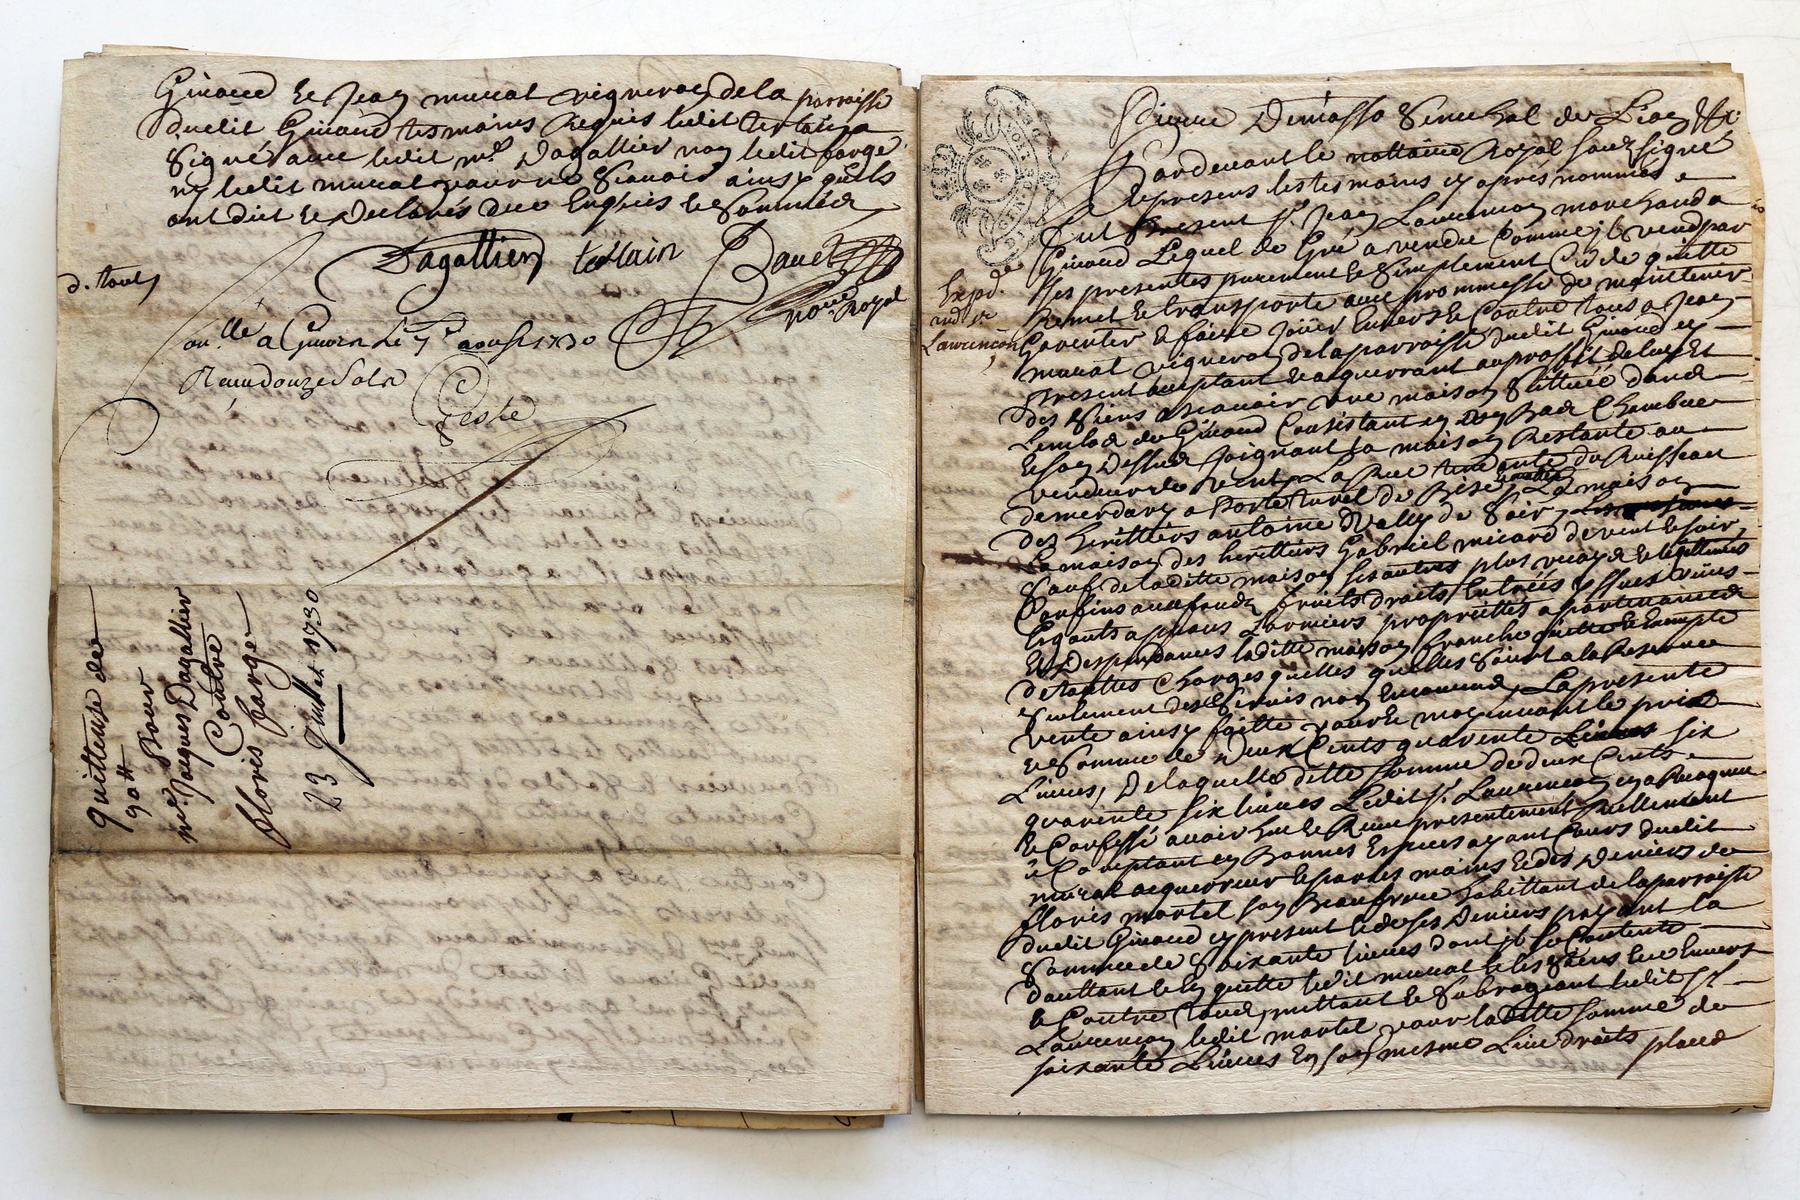 Giraud et Jean murat vigneron de la parroisse
dudit Giraud tesmoins Requis ledit tertain a
Signé avec ledit mr Dagallier non ledit farge
ny ledit murat pour ne Scavoir ainsy quils
ont dict et Declarés de ce Enquis et Sommés
Dagallier tertain
d. tous
nore Royal
a le 7e aoust 1730
Reçu douze Sols
quittense de
90 #
Pour
Jacques Dagallier
Contre
floris farge
23 Juillet 1730
Pierre Demasso Senechal de Lion
Pardevant le nottaire Royal Soubsigné
et presens les tesmoins cy apres nommés
fut Present sr Jean Laurencon marchand a
Giraud Lequel de Gré a vendu Comme jl vend par
Ses presentes purement et Simplement Cede quitte
Remet et transporte avec prommesse de maintenir
Garentir et faire Joüir Envers et Contre tous a Jean
murat vigneron de la parroisse dudit Giraud cy
present acceptant et acquerrant au proffit de luy et
des Siens a Scavoir une maison Scittuée dans
Giraud Consistant en Bas Chambre
et son Dessus Joignant sa maison Restante au
vendeur de vent, La Rue tendante du Ruisseau
de merdary a de Bise, La maison
des herittiers antoine de Soir,
La maison des herittiers Gabriel micard de vent et soir
Sauf de laditte maison ses autres plus vrays et legittimes
Confins avec fonds, fruits droits Entrées yssues
proprietés appartenances
et Despendances laditte maison franche quitte et Exempte
de touttes Charges quelles quelles Soient a la Reserve
Seulement des Servis non La presente
vente ainsy faitte pour et moyennant le prix
et Somme de Deux Cents quarente six
Livres, De laquelle ditte Somme de deux Cents
quarente six livres Ledit sr Laurencon
et Confessé avoir heu et Receu presentement Reellement
et Comptant en Bonnes Especes ayant Cours dudit
murat acquerreur et par les mains et des Deniers de
floris martel son Beaufrere habittant de la parroisse
dudit Giraud cy present et de ses Deniers payant la
Somme de Soixante livres dont jl se Contente
d'auttant et En quitte ledit murat et les Siens et Envers
et Contre tous, mettant et Subrogeant ledit sr
Laurencon ledit martel pour laditte Somme de
soixante Livres En son mesme Lieu droits place
Expd.
Laurencon